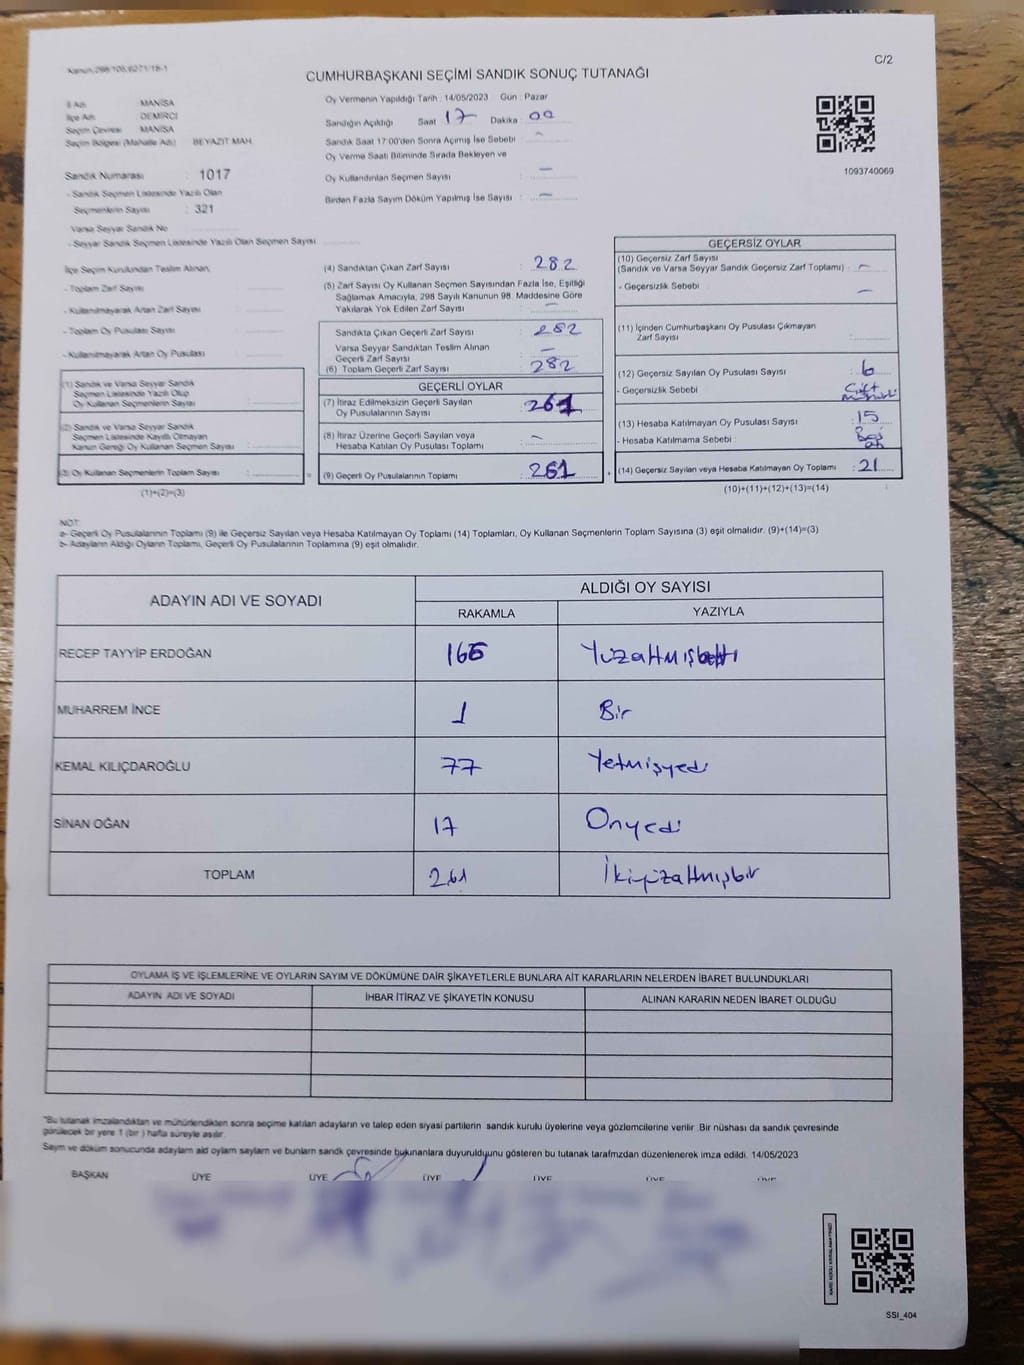 Kanun:298/105,6271/18-1
C/2
CUMHURBAŞKANI SEÇİMİ SANDIK SONUÇ TUTANAĞI
İl Adı MANİSA
İlçe Adı DEMİRCİ
Seçim Çevresi MANİSA
Seçim Bölgesi (Mahalle Adı) BEYAZIT MAH.
Sandık Numarası : 1017
- Sandık Seçmen Listesinde Yazılı Olan
Seçmenlerin Sayısı : 321
Varsa Seyyar Sandık No
- Seyyar Sandık Seçmen Listesinde Yazılı Olan Seçmen Sayısı
Oy Vermenin Yapıldığı Tarih : 14/05/2023 Gün : Pazar
Sandığın Açıldığı Saat 17 Dakika : 00
Sandık Saat 17:00'den Sonra Açımış İse Sebebi : -
Oy Verme Saati Bitiminde Sırada Bekleyen ve
Oy Kullandırılan Seçmen Sayısı : -
Birden Fazla Sayım Döküm Yapılmış İse Sayısı : -
1093740069
İlçe Seçim Kurulundan Teslim Alınan,
- Toplam Zarf Sayısı :
- Kullanılmayarak Artan Zarf Sayısı :
- Toplam Oy Pusulası Sayısı :
- Kullanılmayarak Artan Oy Pusulası :
(1) Sandık ve Varsa Seyyar Sandık
Seçmen Listesinde Yazılı Olup
Oy Kullanan Seçmenlerin Sayısı :
(2) Sandık ve Varsa Seyyar Sandık
Seçmen Listesinde Kayıtlı Olmayan
Kanun Gereği Oy Kullanan Seçmen Sayısı :
(3) Oy Kullanan Seçmenlerin Toplam Sayısı :
(1)+(2)=(3)
(4) Sandıktan Çıkan Zarf Sayısı : 282
(5) Zarf Sayısı Oy Kullanan Seçmen Sayısından Fazla İse, Eşitliği
Sağlamak Amacıyla, 298 Sayılı Kanunun 98. Maddesine Göre
Yakılarak Yok Edilen Zarf Sayısı : -
Sandıkta Çıkan Geçerli Zarf Sayısı : 282
Varsa Seyyar Sandıktan Teslim Alınan
Geçerli Zarf Sayısı : -
(6) Toplam Geçerli Zarf Sayısı : 282
GEÇERLİ OYLAR
(7) İtiraz Edilmeksizin Geçerli Sayılan
Oy Pusulalarının Sayısı : 261
(8) İtiraz Üzerine Geçerli Sayılan veya
Hesaba Katılan Oy Pusulası Toplamı : -
= (9) Geçerli Oy Pusulalarının Toplamı : 261 +
GEÇERSİZ OYLAR
(10) Geçersiz Zarf Sayısı
(Sandık ve Varsa Seyyar Sandık Geçersiz Zarf Toplamı) : -
- Geçersizlik Sebebi : -
(11) İçinden Cumhurbaşkanı Oy Pusulası Çıkmayan
Zarf Sayısı :
(12) Geçersiz Sayılan Oy Pusulası Sayısı : 6
- Geçersizlik Sebebi : Çift
(13) Hesaba Katılmayan Oy Pusulası Sayısı : 15
- Hesaba Katılmama Sebebi : Boş
(14) Geçersiz Sayılan veya Hesaba Katılmayan Oy Toplamı : 21
(10)+(11)+(12)+(13)=(14)
NOT:
a- Geçerli Oy Pusulalarının Toplamı (9) ile Geçersiz Sayılan veya Hesaba Katılmayan Oy Toplamı (14) Toplamları, Oy Kullanan Seçmenlerin Toplam Sayısına (3) eşit olmalıdır. (9)+(14)=(3)
b- Adayların Aldığı Oyların Toplamı, Geçerli Oy Pusulalarının Toplamına (9) eşit olmalıdır.
ADAYIN ADI VE SOYADI
ALDIĞI OY SAYISI
RAKAMLA YAZIYLA
RECEP TAYYİP ERDOĞAN 166 Yüzaltmışaltı
MUHARREM İNCE 1 Bir
KEMAL KILIÇDAROĞLU 77 Yetmişyedi
SİNAN OĞAN 17 Onyedi
TOPLAM 261 İkiyüzaltmışbir
OYLAMA İŞ VE İŞLEMLERİNE VE OYLARIN SAYIM VE DÖKÜMÜNE DAİR ŞİKAYETLERLE BUNLARA AİT KARARLARIN NELERDEN İBARET BULUNDUKLARI
ADAYIN ADI VE SOYADI İHBAR İTİRAZ VE ŞİKAYETİN KONUSU ALINAN KARARIN NEDEN İBARET OLDUĞU
"Bu tutanak imzalandıktan ve mühürlendikten sonra seçime katılan adayların ve talep eden siyasi partilerin sandık kurulu üyelerine veya gözlemcilerine verilir .Bir nüshası da sandık çevresinde
görülecek bir yere 1 (bir ) hafta süreyle asılır.
Sayım ve döküm sonucunda adayların ald oyların sayıları ve bunların sandık çevresinde bulunanlara duyurulduğunu gösteren bu tutanak tarafımzdan düzenlenerek imza edildi. 14/05/2023
BAŞKAN ÜYE ÜYE ÜYE ÜYE ÜYE ÜYE
SSİ_404